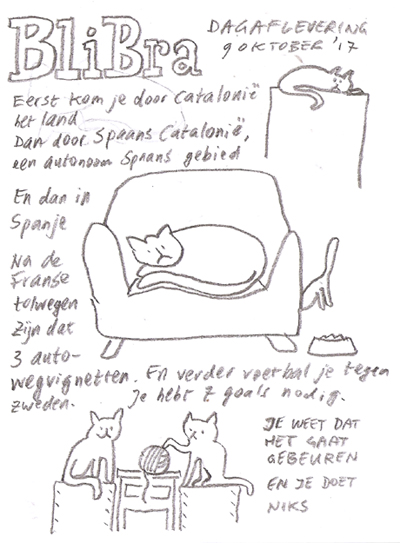 BLiBra
DAGAFLEVERING
9 OKTOBER '17
Eerst kom je door Catalonië
het land
Dan door Spaans Catalonië,
een autonoom Spaans gebied
En dan in
Spanje
Na de
Franse
tolwegen
zijn dat
3 auto-
wegvignetten. En verder voetbal je tegen
Zweden. Je hebt 7 goals nodig.
JE WEET DAT
HET GAAT
GEBEUREN
EN JE DOET
NIKS